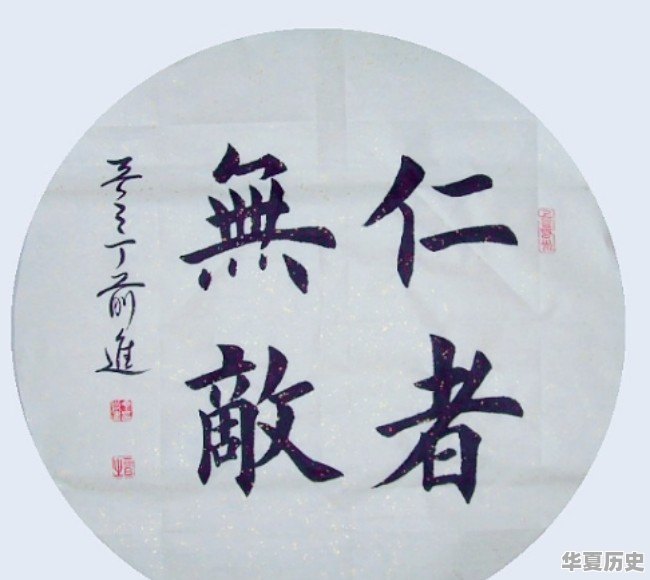 仁者
無敵
丁前進
华夏历史